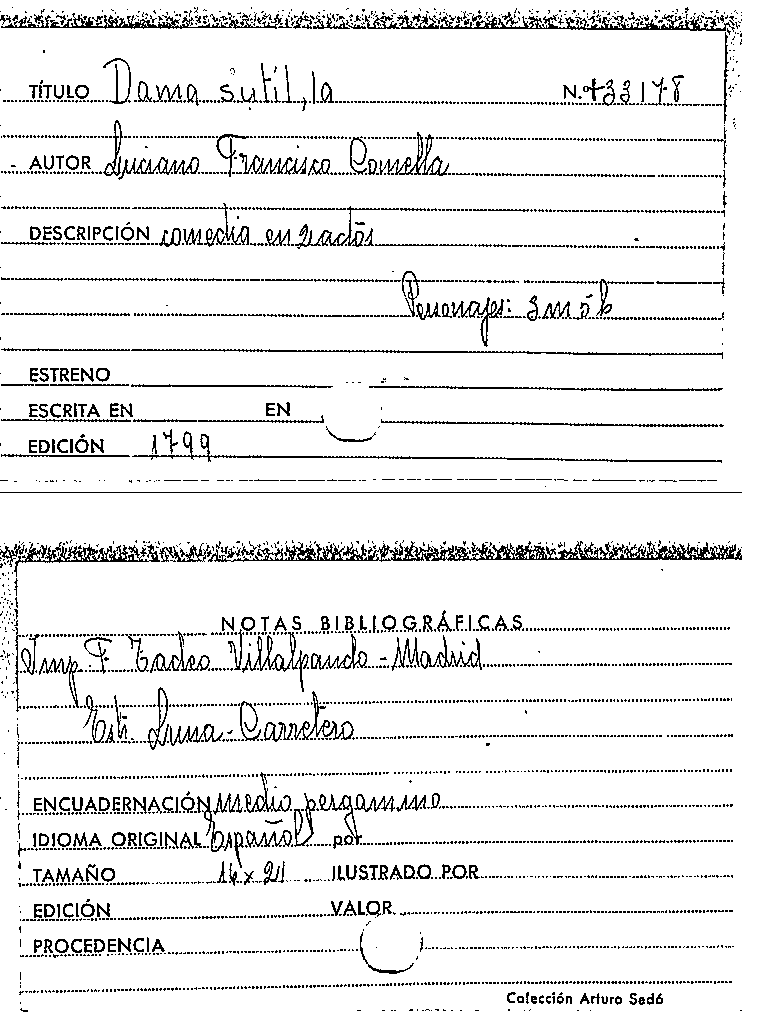 TÍTULO Dama sutil, la N.º 33178
AUTOR Luciano Francisco Comella
DESCRIPCIÓN comedia en 2 actos
Personajes: 3 m 5 h
ESTRENO
ESCRITA EN EN
EDICIÓN 1799
NOTAS BIBLIOGRÁFICAS
Imp. F. Tadeo Villalpando - Madrid
Luna - Carretero
ENCUADERNACIÓN medio pergamino
IDIOMA ORIGINAL Español por
TAMAÑO 16 x 21 ILUSTRADO POR
EDICIÓN VALOR
PROCEDENCIA
Colección Arturo Sedó